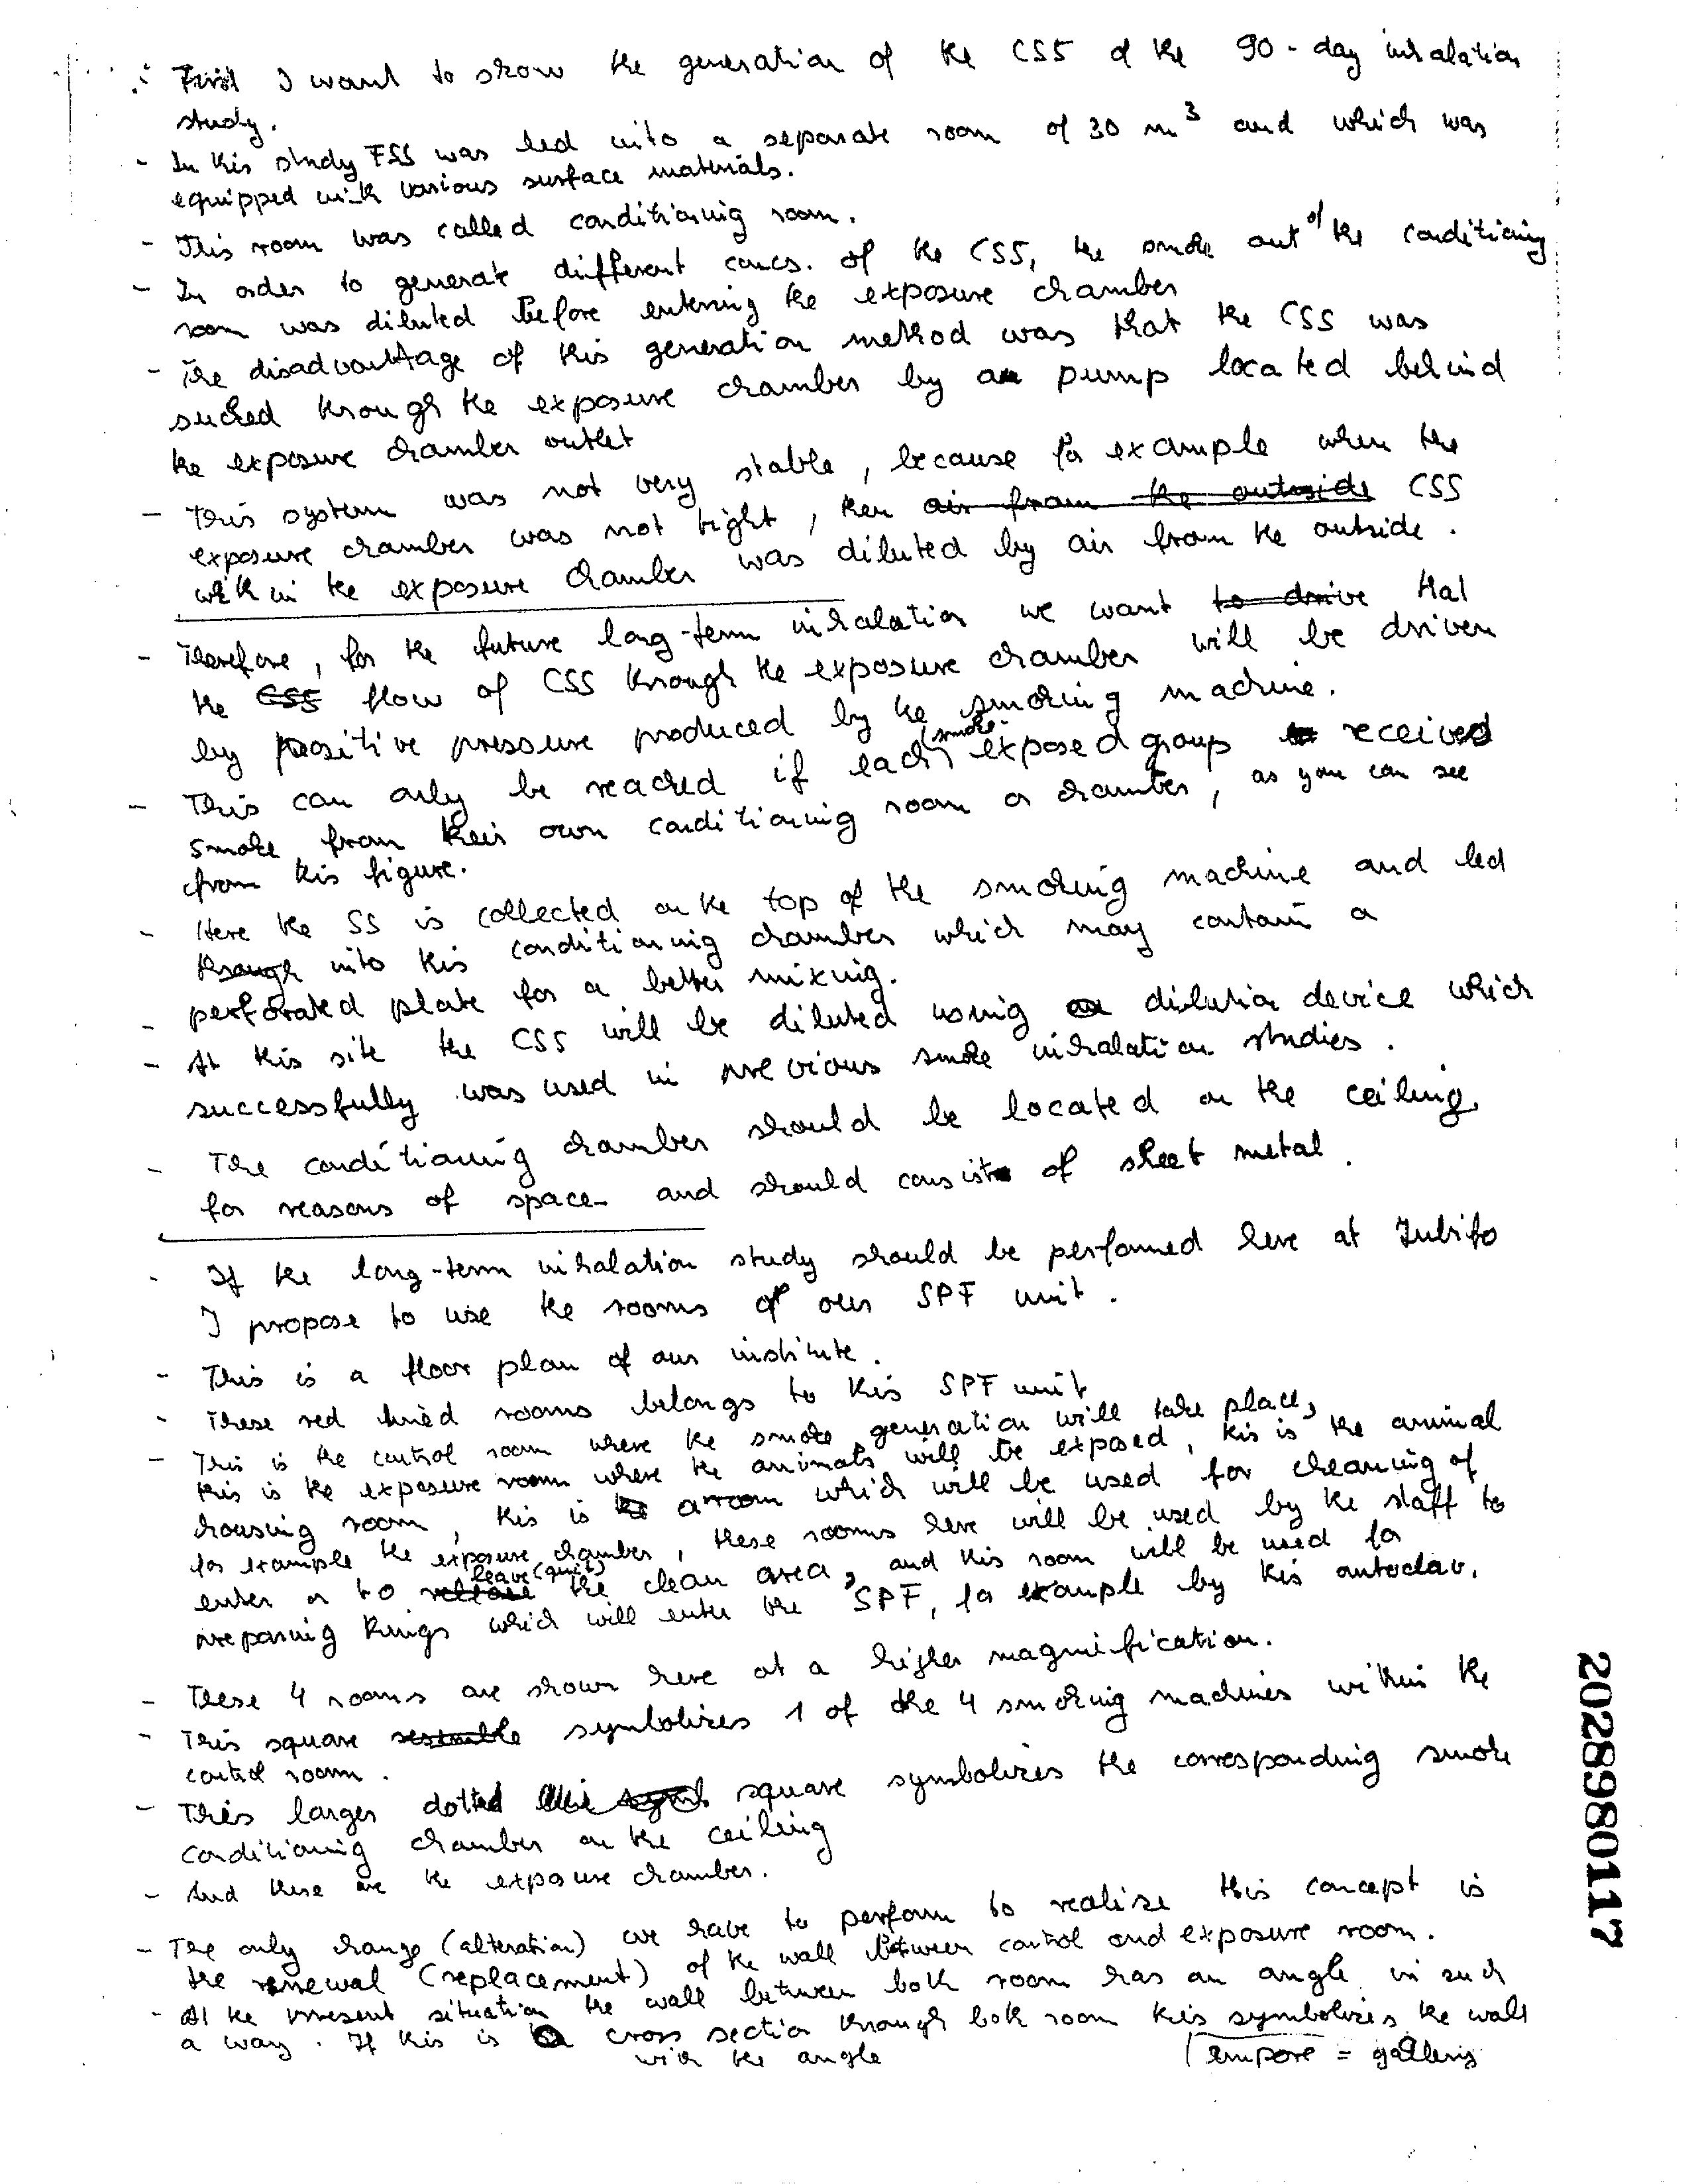 First I want to show the generation of the CSS of the 90-day inhalation
study.
- In this study FSS was led into a separate room of 30 m³ and which was
equipped with various surface materials.
- This room was called conditioning room.
- In order to generate different concs. of the CSS, the smoke out of the conditioning
room was diluted before entering the exposure chamber
- The disadvantage of this generation method was that the CSS was
sucked through the exposure chamber by a pump located behind
the exposure chamber outlet
- This system was not very stable, because for example when the
exposure chamber was not tight, then air from the outside CSS
within the exposure chamber was diluted by air from the outside.
- Therefore, for the future long-term inhalation we want to drive that
the CSS flow of CSS through the exposure chamber will be driven
by positive pressure produced by the smoking machine.
- This can only be reached if each (smoke-) exposed group received
smoke from their own conditioning room or chamber, as you can see
from this figure.
- Here the SS is collected on the top of the smoking machine and led
through into this conditioning chamber which may contain a
- perforated plate for a better mixing.
- At this site the CSS will be diluted using dilution device which
successfully was used in previous smoke inhalation studies.
- The conditioning chamber should be located on the ceiling
for reasons of space and should consist of sheet metal.
- If the long-term inhalation study should be performed here at Inbifo
I propose to use the rooms of our SPF unit.
- This is a floor plan of our institute.
- These red lined rooms belongs to this SPF unit
- This is the control room where the smoke generation will take place,
this is the exposure room where the animals will be exposed, this is the animal
housing room, this is a room which will be used for cleaning of
for example the exposure chamber, these rooms here will be used by the staff to
enter or to leave (quit) the clean area, and this room will be used for
preparing things which will enter the SPF, for example by this autoclav.
- These 4 rooms are shown here at a higher magnification.
- This square symbolizes 1 of the 4 smoking machines within the
control room.
- This larger dotted square symbolizes the corresponding smoke
conditioning chamber on the ceiling
- And these are the exposure chamber.
- The only change (alteration) we have to perform to realize this concept is
the renewal (replacement) of the wall between control and exposure room.
- At the present situation the wall between both room has an angle in such
a way. If this is a cross section through both room this symbolizes the wall
with the angle
empore = gallery
2028980117